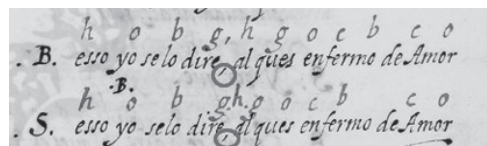 h o b g, h g o c b c o
.B. esso yo se lo dire, al ques enfermo de Amor
.B.
h o b g h. g o c b c o
.S. esso yo se lo dire, al ques enfermo de Amor